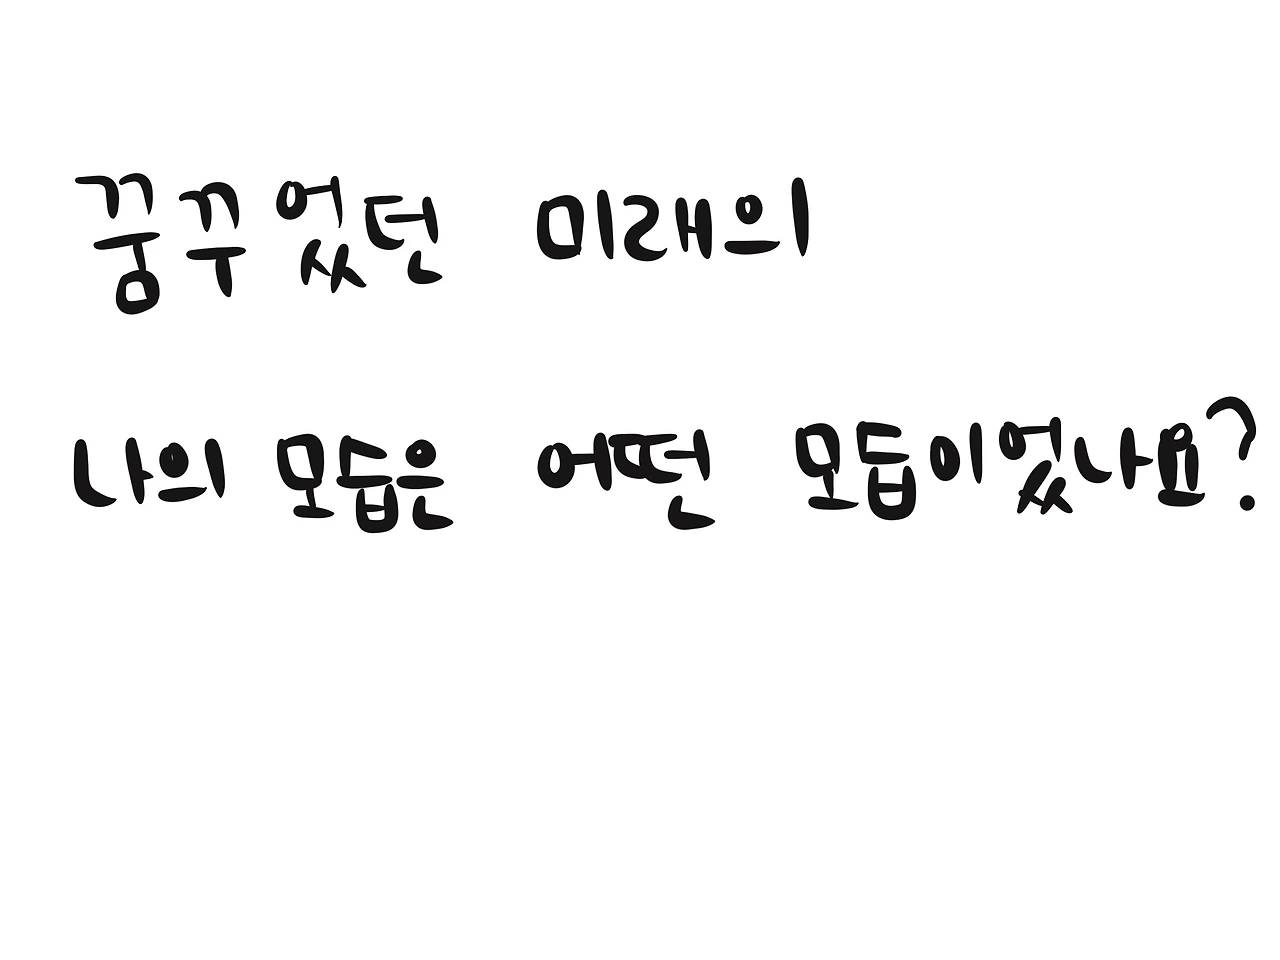 꿍꾸었던 미래의
나의 모듭은 어떤 모듭이었나요?